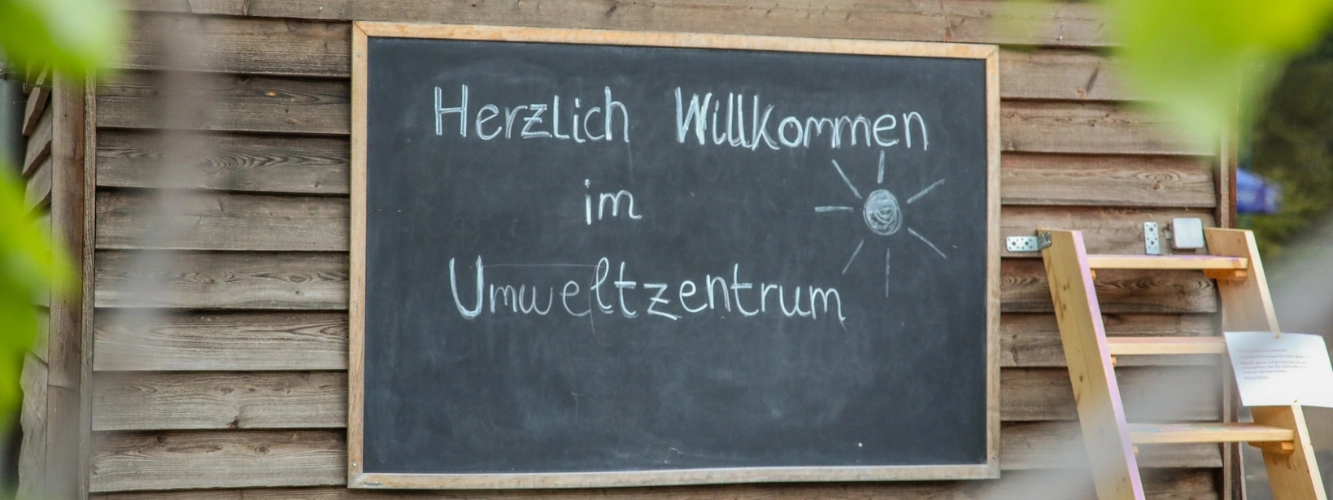 Herzlich Willkommen
im
Umweltzentrum